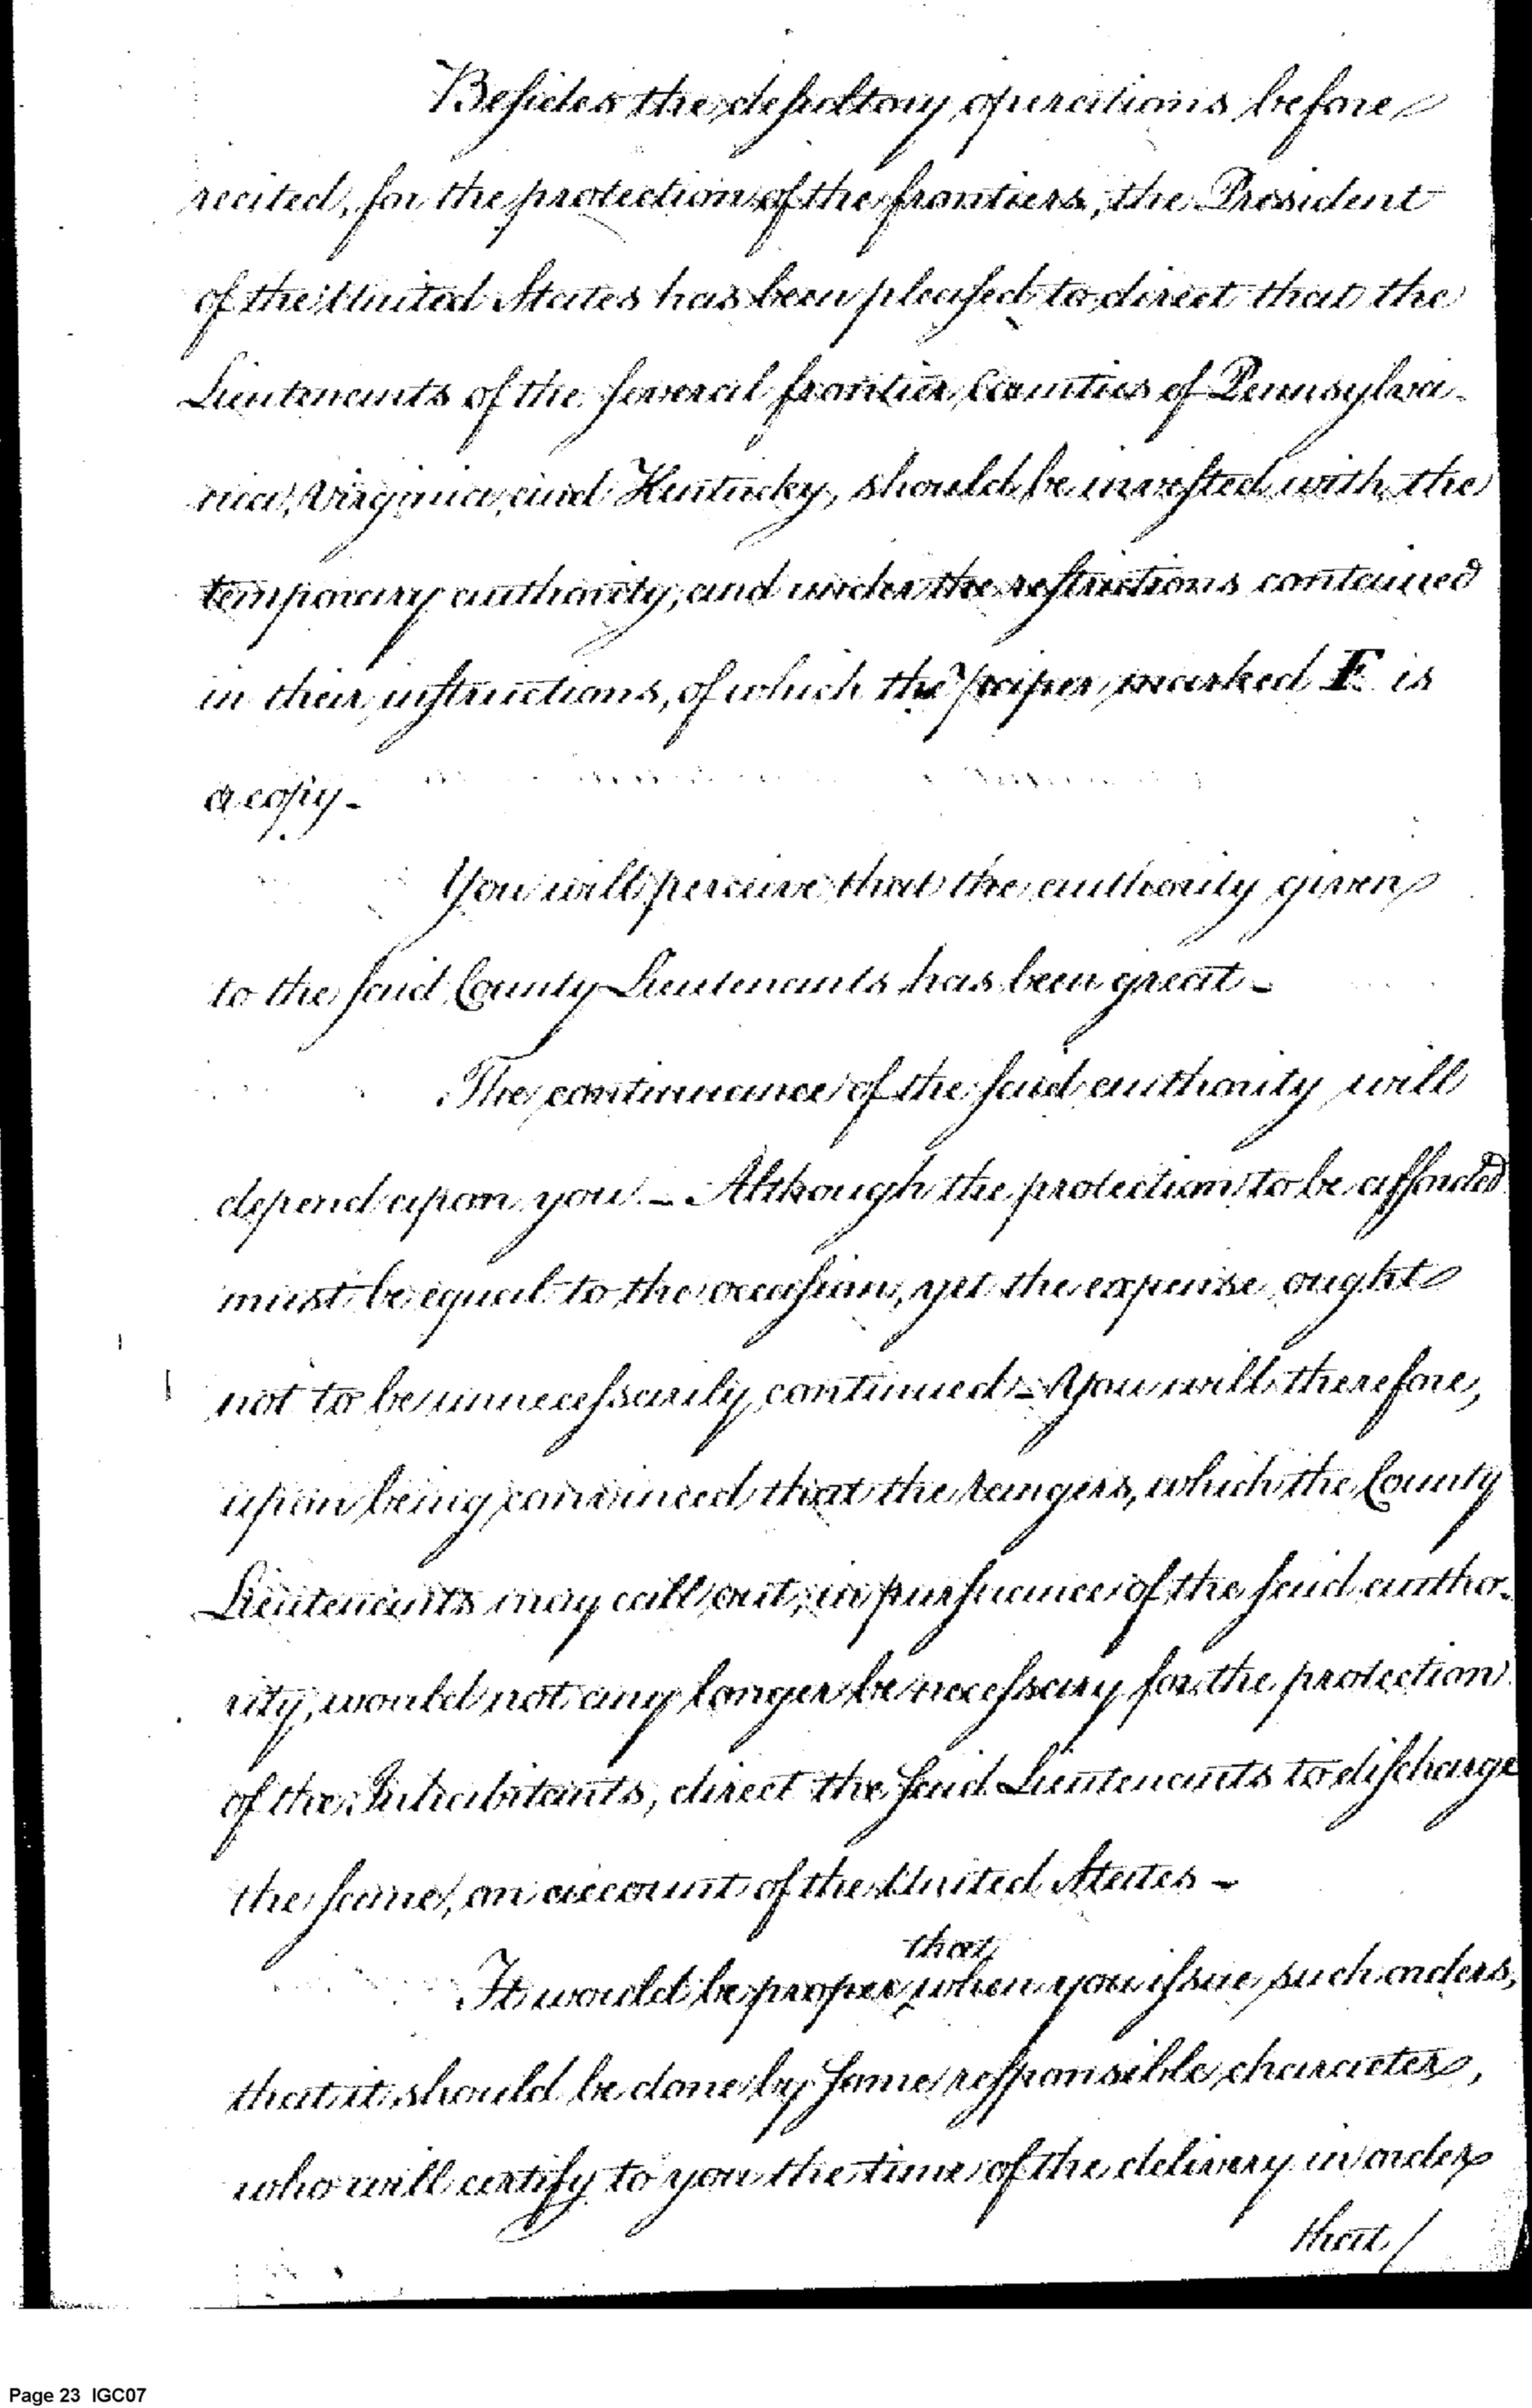 Besides the desultory operations before
recited, for the protection of the frontiers, the President
of the United States has been pleased to direct that the
Lieutenants of the several frontier Counties of Pennsylva-
nia, Virginia, and Kentucky, should be invested with the
temporary authority, and under the restrictions contained
in their instructions, of which the paper marked F. is
a copy-
You will perceive that the authority given
to the said County Lieutenants has been great-
The continuance of the said authority will
depend upon you - Although the protection to be afforded
must be equal to the occasion, yet the expense ought
not to be unnecessarily continued - You will therefore,
upon being convinced that the rangers, which the County
Lieutenants may call out, in pursuance of the said autho-
rity, would not any longer be necessary for the protection
of the Inhabitants, direct the said Lieutenants to discharge
the same, on account of the United States -
that
It would be proper when you issue such orders,
that it should be done by some responsible character,
who will certify to you the time of the delivery in order
that/
Page 23 IGC07